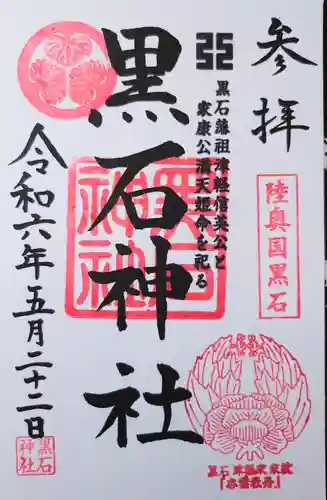 参拝
陸奥国黒石
黒石藩祖津軽信英公と
家康公満天姫命を祀る
黒石神社
黒石
神社
令和六年五月二十二日
黒石
神社
黒石津軽家家紋